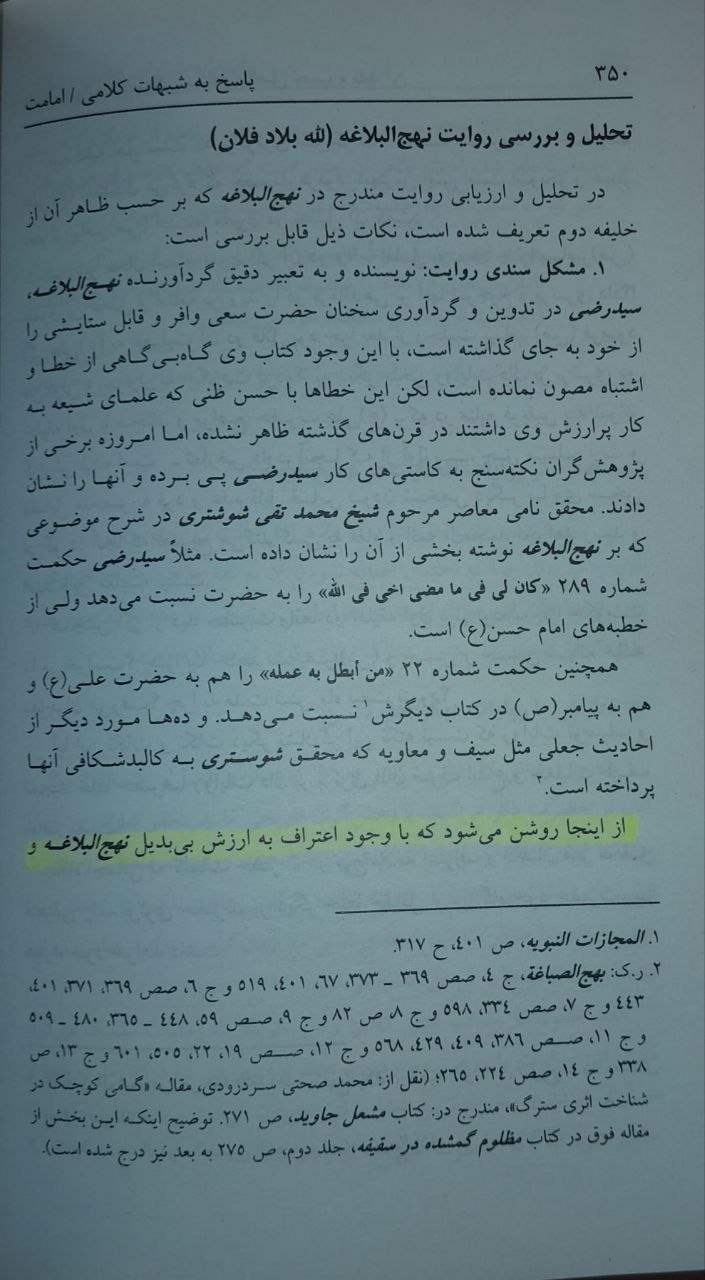 ۳۵۰
پاسخ به شبهات کلامی / امامت
تحلیل و بررسی روایت نهج‌البلاغه (لله بلاد فلان)
در تحلیل و ارزیابی روایت مندرج در نهج‌البلاغه که بر حسب ظاهر آن از
خلیفه دوم تعریف شده است، نکات ذیل قابل بررسی است:
۱. مشکل سندی روایت: نویسنده و به تعبیر دقیق گردآورنده نهج‌البلاغه،
سیدرضی در تدوین و گردآوری سخنان حضرت سعی وافر و قابل ستایشی را
از خود به جای گذاشته است، با این وجود کتاب وی گاه‌بی‌گاهی از خطا و
اشتباه مصون نمانده است، لکن این خطاها با حسن ظنی که علمای شیعه به
کار پرارزش وی داشتند در قرن‌های گذشته ظاهر نشده، اما امروزه برخی از
پژوهش‌گران نکته‌سنج به کاستی‌های کار سیدرضی پی برده و آنها را نشان
دادند. محقق نامی معاصر مرحوم شیخ محمد تقی شوشتری در شرح موضوعی
که بر نهج‌البلاغه نوشته بخشی از آن را نشان داده است. مثلاً سیدرضی حکمت
شماره ۲۸۹ «کان لی فی ما مضی اخی فی الله» را به حضرت نسبت می‌دهد ولی از
خطبه‌های امام حسن(ع) است.
همچنین حکمت شماره ۲۲ «من أبطل به عمله» را هم به حضرت علی(ع) و
هم به پیامبر(ص) در کتاب دیگرش۱ نسبت می‌دهد. و ده‌ها مورد دیگر از
احادیث جعلی مثل سیف و معاویه که محقق شوستری به کالبدشکافی آنها
پرداخته است.۲
از اینجا روشن می‌شود که با وجود اعتراف به ارزش بی‌بدیل نهج‌البلاغه و
۱. المجازات النبویه، ص ۴۰۱، ح ۳۱۷.
۲. ر.ک: بهج‌الصباغة، ج ۴، صص ۳۶۹ ـ ۳۷۳، ۶۷، ۴۰۱، ۵۱۹ و ج ۶، صص ۳۶۹، ۳۷۱، ۴۰۱،
۴۴۳ و ج ۷، صص ۳۳۴، ۵۹۸ و ج ۸، ص ۸۲ و ج ۹، صص ۵۹، ۴۴۸ ـ ۳۶۵، ۴۸۰ ـ ۵۰۹
و ج ۱۱، صص ۳۸۶، ۴۰۹، ۴۲۹، ۵۶۸ و ج ۱۲، صص ۱۹، ۲۲، ۵۰۵، ۶۰۱ و ج ۱۳، ص
۳۳۸ و ج ۱۴، صص ۲۲۴، ۲۶۵؛ (نقل از: محمد صحتی سردرودی، مقاله «گامی کوچک در
شناخت اثری سترگ»، مندرج در: کتاب مشعل جاوید، ص ۲۷۱. توضیح اینکه این بخش از
مقاله فوق در کتاب مظلوم گمشده در سقیفه، جلد دوم، ص ۲۷۵ به بعد نیز درج شده است).